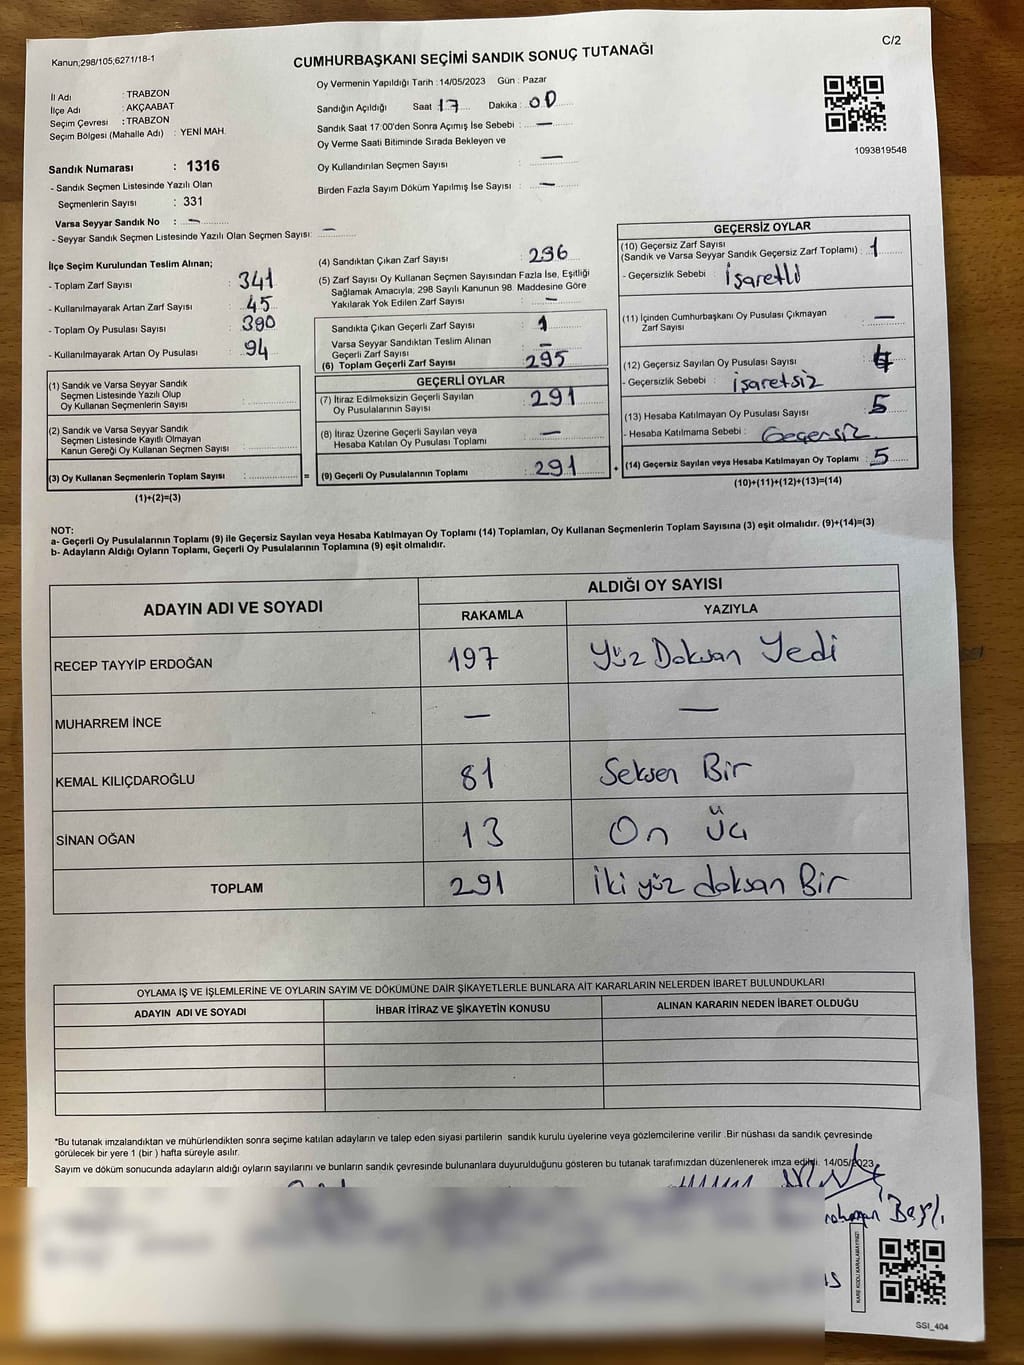 Kanun;298/105,6271/18-1
C/2
CUMHURBAŞKANI SEÇİMİ SANDIK SONUÇ TUTANAĞI
İl Adı : TRABZON
İlçe Adı : AKÇAABAT
Seçim Çevresi : TRABZON
Seçim Bölgesi (Mahalle Adı) : YENİ MAH.
Sandık Numarası : 1316
- Sandık Seçmen Listesinde Yazılı Olan
Seçmenlerin Sayısı : 331
Varsa Seyyar Sandık No : —
- Seyyar Sandık Seçmen Listesinde Yazılı Olan Seçmen Sayısı: —
Oy Vermenin Yapıldığı Tarih : 14/05/2023 Gün : Pazar
Sandığın Açıldığı Saat 17 Dakika : 00
Sandık Saat 17:00'den Sonra Açımış İse Sebebi : —
Oy Verme Saati Bitiminde Sırada Bekleyen ve
Oy Kullandırılan Seçmen Sayısı : —
Birden Fazla Sayım Döküm Yapılmış İse Sayısı : —
1093819548
İlçe Seçim Kurulundan Teslim Alınan;
- Toplam Zarf Sayısı : 341
- Kullanılmayarak Artan Zarf Sayısı : 45
- Toplam Oy Pusulası Sayısı : 390
- Kullanılmayarak Artan Oy Pusulası : 94
(1) Sandık ve Varsa Seyyar Sandık
Seçmen Listesinde Yazılı Olup
Oy Kullanan Seçmenlerin Sayısı :
(2) Sandık ve Varsa Seyyar Sandık
Seçmen Listesinde Kayıtlı Olmayan
Kanun Gereği Oy Kullanan Seçmen Sayısı :
(3) Oy Kullanan Seçmenlerin Toplam Sayısı : =
(1)+(2)=(3)
(4) Sandıktan Çıkan Zarf Sayısı : 296
(5) Zarf Sayısı Oy Kullanan Seçmen Sayısından Fazla İse, Eşitliği
Sağlamak Amacıyla, 298 Sayılı Kanunun 98. Maddesine Göre
Yakılarak Yok Edilen Zarf Sayısı : —
Sandıkta Çıkan Geçerli Zarf Sayısı : 1
Varsa Seyyar Sandıktan Teslim Alınan
Geçerli Zarf Sayısı : —
(6) Toplam Geçerli Zarf Sayısı : 295
GEÇERLİ OYLAR
(7) İtiraz Edilmeksizin Geçerli Sayılan
Oy Pusulalarının Sayısı : 291
(8) İtiraz Üzerine Geçerli Sayılan veya
Hesaba Katılan Oy Pusulası Toplamı : —
(9) Geçerli Oy Pusulalarının Toplamı : 291 +
GEÇERSİZ OYLAR
(10) Geçersiz Zarf Sayısı
(Sandık ve Varsa Seyyar Sandık Geçersiz Zarf Toplamı) : 1
- Geçersizlik Sebebi : İşaretli
(11) İçinden Cumhurbaşkanı Oy Pusulası Çıkmayan
Zarf Sayısı : —
(12) Geçersiz Sayılan Oy Pusulası Sayısı : 4
- Geçersizlik Sebebi : işaretsiz
(13) Hesaba Katılmayan Oy Pusulası Sayısı : 5
- Hesaba Katılmama Sebebi : Geçersiz
(14) Geçersiz Sayılan veya Hesaba Katılmayan Oy Toplamı : 5
(10)+(11)+(12)+(13)=(14)
NOT:
a- Geçerli Oy Pusulalarının Toplamı (9) ile Geçersiz Sayılan veya Hesaba Katılmayan Oy Toplamı (14) Toplamları, Oy Kullanan Seçmenlerin Toplam Sayısına (3) eşit olmalıdır. (9)+(14)=(3)
b- Adayların Aldığı Oyların Toplamı, Geçerli Oy Pusulalarının Toplamına (9) eşit olmalıdır.
ADAYIN ADI VE SOYADI ALDIĞI OY SAYISI
RAKAMLA YAZIYLA
RECEP TAYYİP ERDOĞAN 197 Yüz Doksan Yedi
MUHARREM İNCE — —
KEMAL KILIÇDAROĞLU 81 Seksen Bir
SİNAN OĞAN 13 On Üç
TOPLAM 291 İki yüz doksan Bir
OYLAMA İŞ VE İŞLEMLERİNE VE OYLARIN SAYIM VE DÖKÜMÜNE DAİR ŞİKAYETLERLE BUNLARA AİT KARARLARIN NELERDEN İBARET BULUNDUKLARI
ADAYIN ADI VE SOYADI İHBAR İTİRAZ VE ŞİKAYETİN KONUSU ALINAN KARARIN NEDEN İBARET OLDUĞU
*Bu tutanak imzalandıktan ve mühürlendikten sonra seçime katılan adayların ve talep eden siyasi partilerin sandık kurulu üyelerine veya gözlemcilerine verilir .Bir nüshası da sandık çevresinde
görülecek bir yere 1 (bir ) hafta süreyle asılır.
Sayım ve döküm sonucunda adayların aldığı oyların sayılarını ve bunların sandık çevresinde bulunanlara duyurulduğunu gösteren bu tutanak tarafımızdan düzenlenerek imza edildi. 14/05/2023
KARE KODU KARALAMAYINIZ!
SSI_404